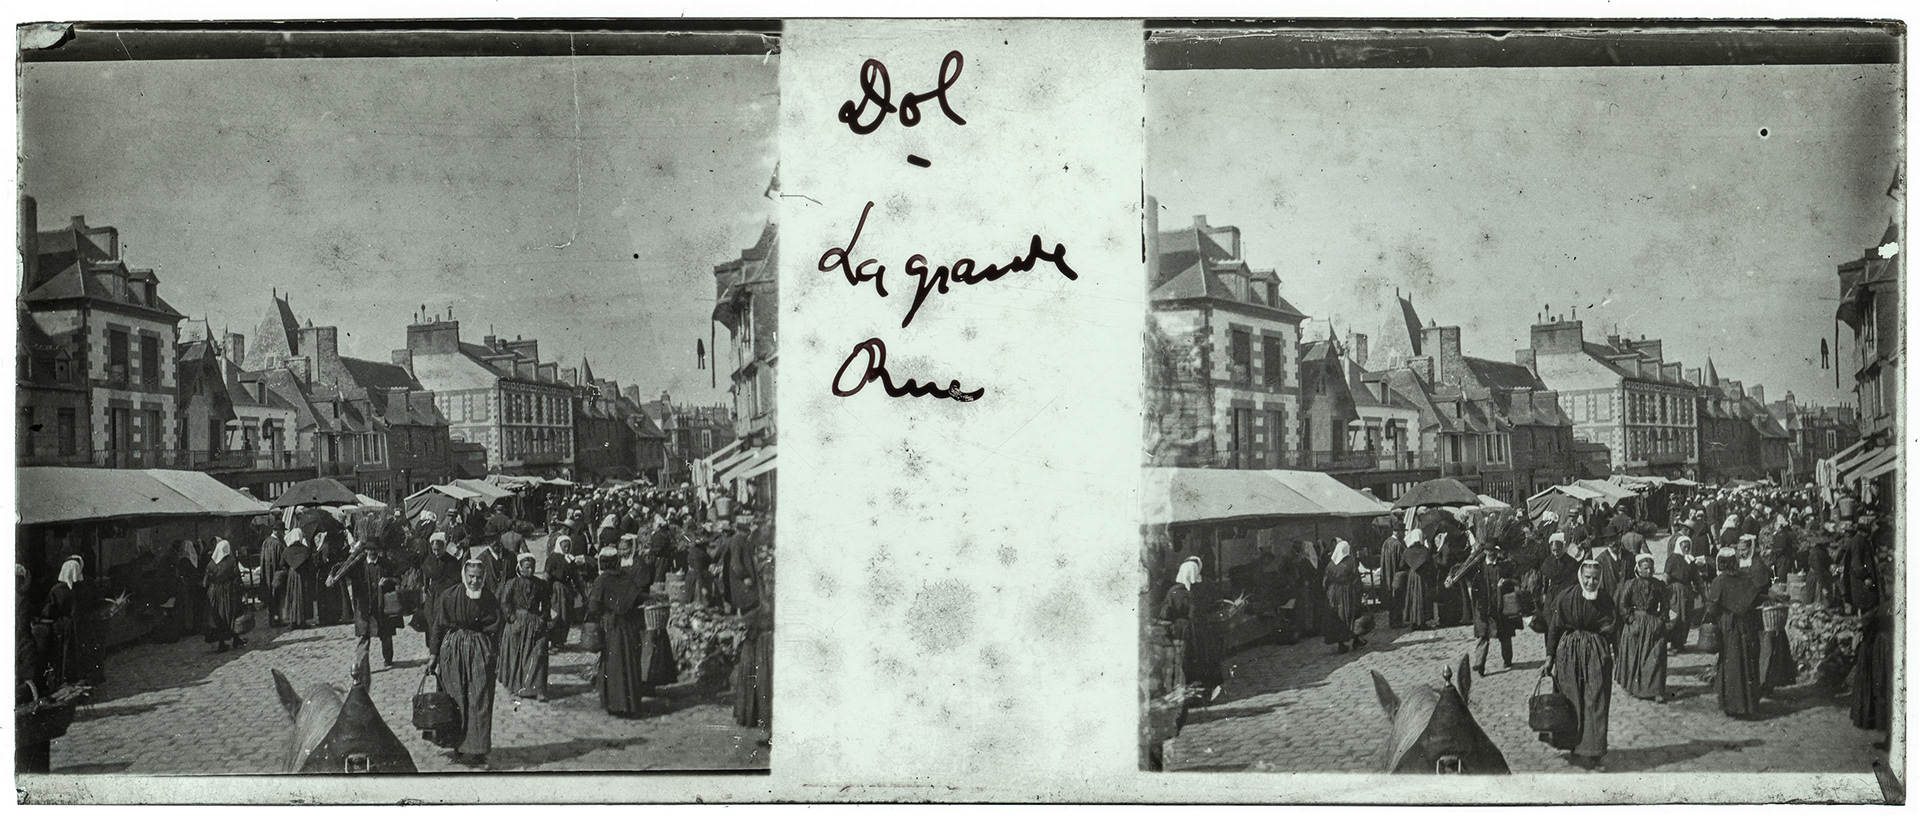 Dol
-
La grande
Rue